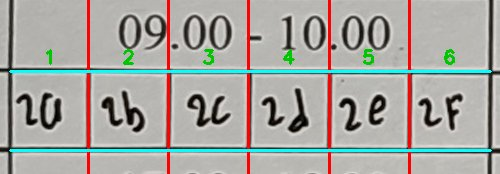 09.00 - 10.00
1 2 3 4 5 6
2a 2b 2c 2d 2e 2F